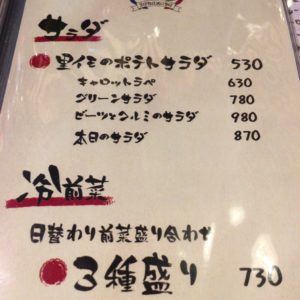 サラダ
里イモのポテトサラダ 530
キャロットラペ 630
グリーンサラダ 780
ビーツとクルミのサラダ 980
本日のサラダ 870
冷前菜
日替わり前菜盛り合わせ
3種盛り 730